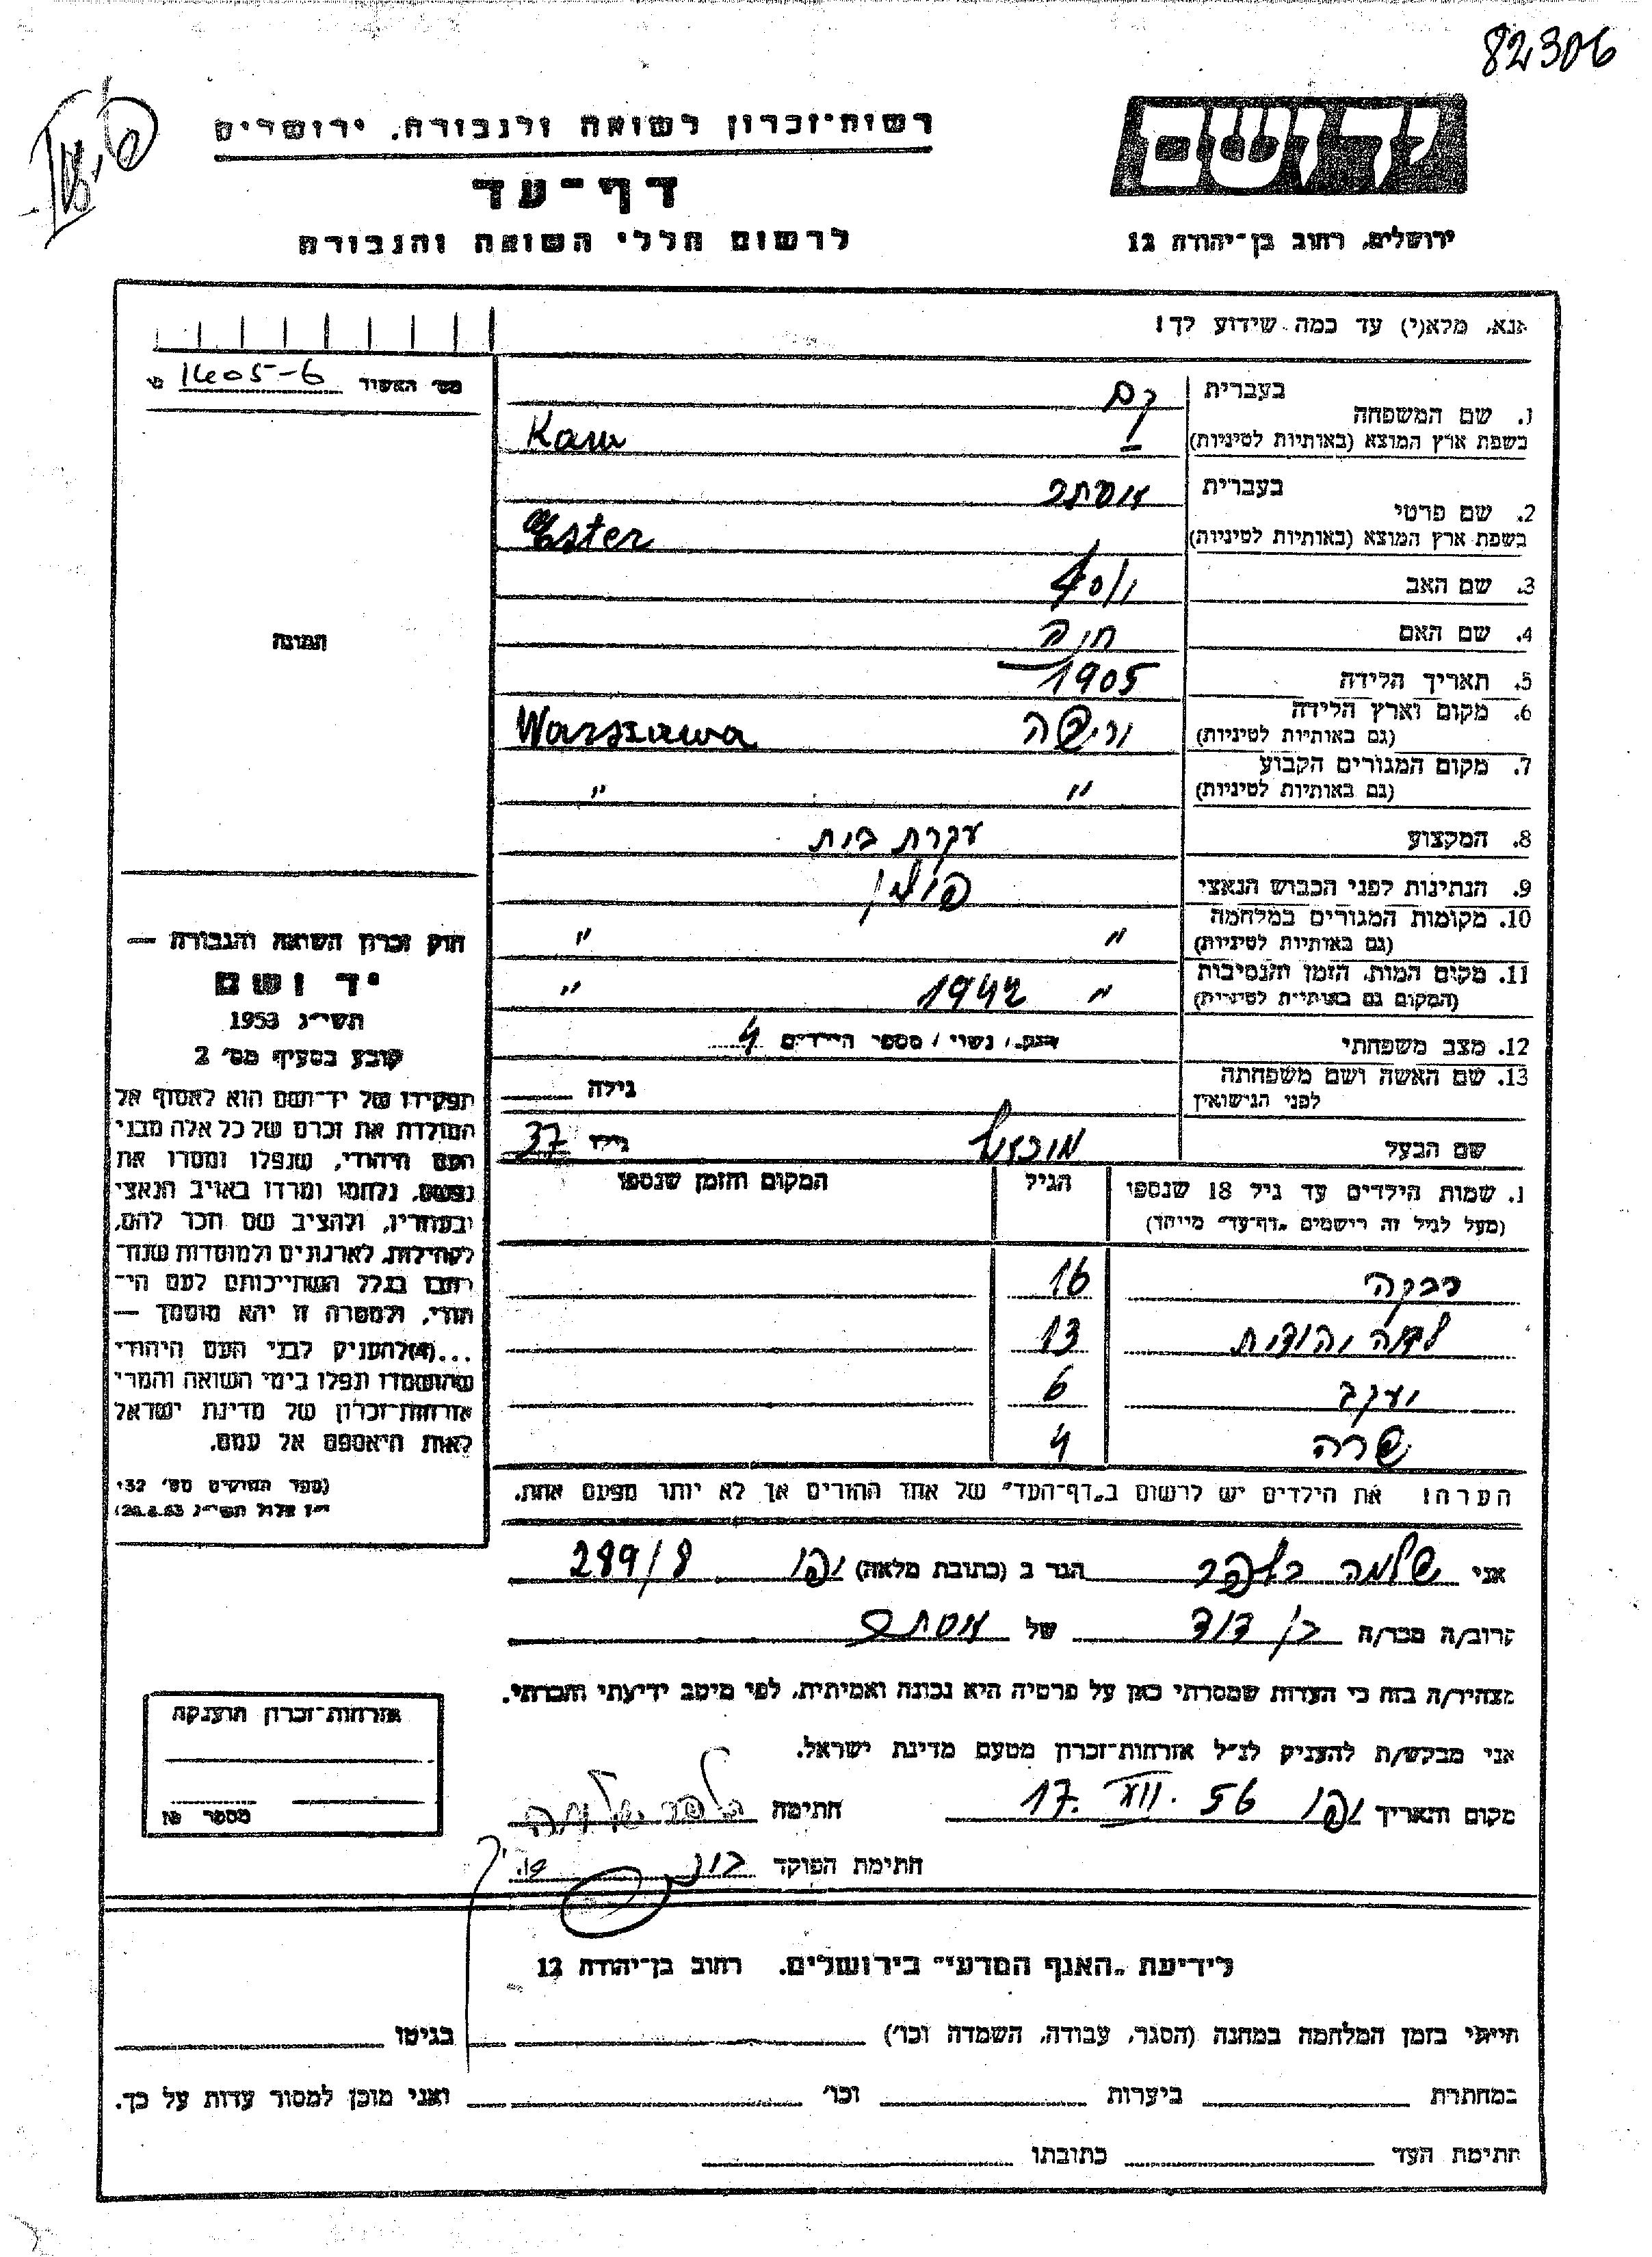 82306
רשות-זכרון לשואה ולגבורה, ירושלים
יד ושם
דף-עד
לרשום חללי השואה והגבורה
ירושלים, רחוב בן-יהודה 12
אנא, מלא(י) עד כמה שידוע לך!
מס' האשור 1405-6
1. שם המשפחה בעברית קם
בשפת ארץ המוצא (באותיות לטיניות) Kam
2. שם פרטי בעברית אסתר
בשפת ארץ המוצא (באותיות לטיניות) Ester
3. שם האב יוסף
4. שם האם חיה
5. תאריך הלידה 1905
6. מקום וארץ הלידה (גם באותיות לטיניות) ורשה Warszawa
7. מקום המגורים הקבוע (גם באותיות לטיניות) " "
8. המקצוע עקרת בית
9. הנתינות לפני הכבוש הנאצי פולין
10. מקומות המגורים במלחמה (גם באותיות לטיניות) " "
11. מקום המות, הזמן והנסיבות (המקום גם באותיות לטיניות) " 1942 "
12. מצב משפחתי נשוי / מספר הילדים 4
13. שם האשה ושם משפחתה לפני הנישואין גילה
שם הבעל גילו 37
1. שמות הילדים עד גיל 18 שנספו הגיל המקום והזמן שנספו
(מעל לגיל זה רישמים "דף-עד" מייוחד)
רבקה 16
יהודית 13
יעקב 6
שרה 4
הערה: את הילדים יש לרשום ב"דף-העד" של אחד ההורים אך לא יותר מפעם אחת.
תמונה
חוק זכרון השואה והגבורה —
יד ושם
תשי"ג 1953
קובע בסעיף מס' 2
תפקידו של יד-ושם הוא לאסוף אל
המולדת את זכרם של כל אלה מבני
העם היהודי, שנפלו ומסרו את
נפשם, נלחמו ומרדו באויב הנאצי
ובעוזריו, ולהציב שם וזכר להם,
לקהילות, לארגונים ולמוסדות שנח-
רבו בגלל השתייכותם לעם הי-
הודי, ולמטרה זו יהא מוסמך —
...(4) להעניק לבני העם היהודי
שהושמדו ונפלו בימי השואה והמרי
אזרחות-זכרון של מדינת ישראל
לאות היאספם אל עמם.
(ספר החוקים מס' 132
י"ז אלול תשי"ג 28.8.53)
אני שלמה הגר ב (כתובת מלאה) יפו 289/8
קרוב/ה מכר/ה בן דוד של אסתר
מצהיר/ה בזה כי העדות שמסרתי כאן על פרטיה היא נכונה ואמיתית, לפי מיטב ידיעתי והכרתי.
אני מבקש/ת להעניק לנ"ל אזרחות-זכרון מטעם מדינת ישראל.
מקום ותאריך יפו 17. XII. 56 חתימה
חתימת הפוקד
אזרחות-זכרון הוענקה
מספר
לידיעת "האגף המדעי" בירושלים, רחוב בן-יהודה 12
הייתי בזמן המלחמה במחנה (הסגר, עבודה, השמדה וכו') בגיטו
במחתרת ביערות וכו' ואני מוכן למסור עדות על כך.
חתימת העד כתובתו